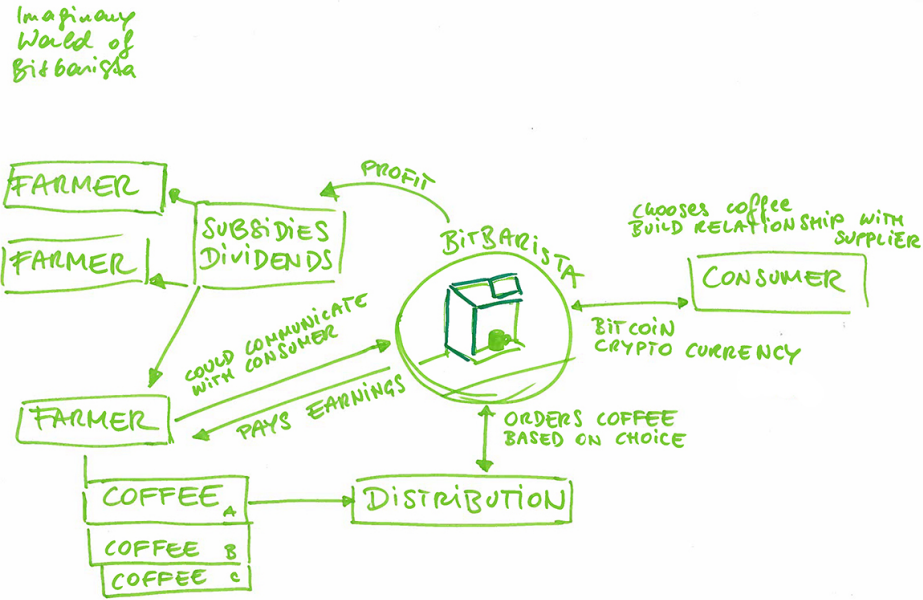 Imaginary
World of
Bitbarista
PROFIT
FARMER
SUBSIDIES
DIVIDENDS
FARMER
BITBARISTA
CHOOSES COFFEE
BUILD RELATIONSHIP WITH
SUPPLIER
CONSUMER
BITCOIN
CRYPTO CURRENCY
COULD COMMUNICATE
WITH CONSUMER
PAYS EARNINGS
FARMER
ORDERS COFFEE
BASED ON CHOICE
COFFEE A
DISTRIBUTION
COFFEE B
COFFEE C